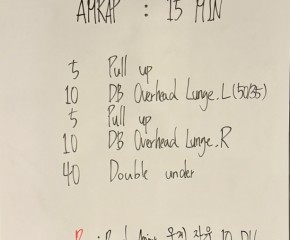 AMRAP : 15 MIN
5 Pull up
10 DB Overhead Lunge.L (50/35)
5 Pull up
10 DB Overhead Lunge.R
40 Double under